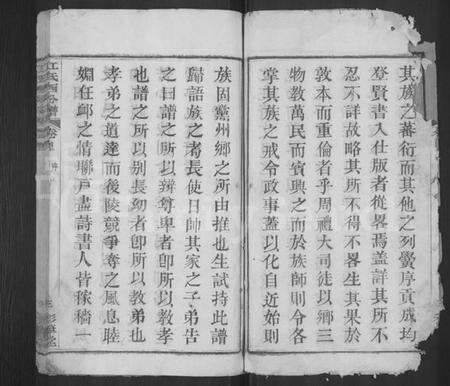 其族之蕃衍而其他之列黌序貢成均
登賢書入仕版者從畧焉盖詳其所不
忍不詳故略其所不得不畧生其果於
敦本而重倫者乎周禮大司徒以鄉三
物教萬民而賓興之而於族師則令各
掌其族之戒令政事蓋以化自近始則
族固黨州鄉之所由推也生試持此譜
歸語族之耆長使日帥其家之子弟告
之曰譜之所以辨尊卑者卽所以教孝
也譜之所以别長幼者卽所以教弟也
孝弟之道達而後陵競爭奪之風息睦
婣任卹之情聯戸盡詩書人皆稼穡一